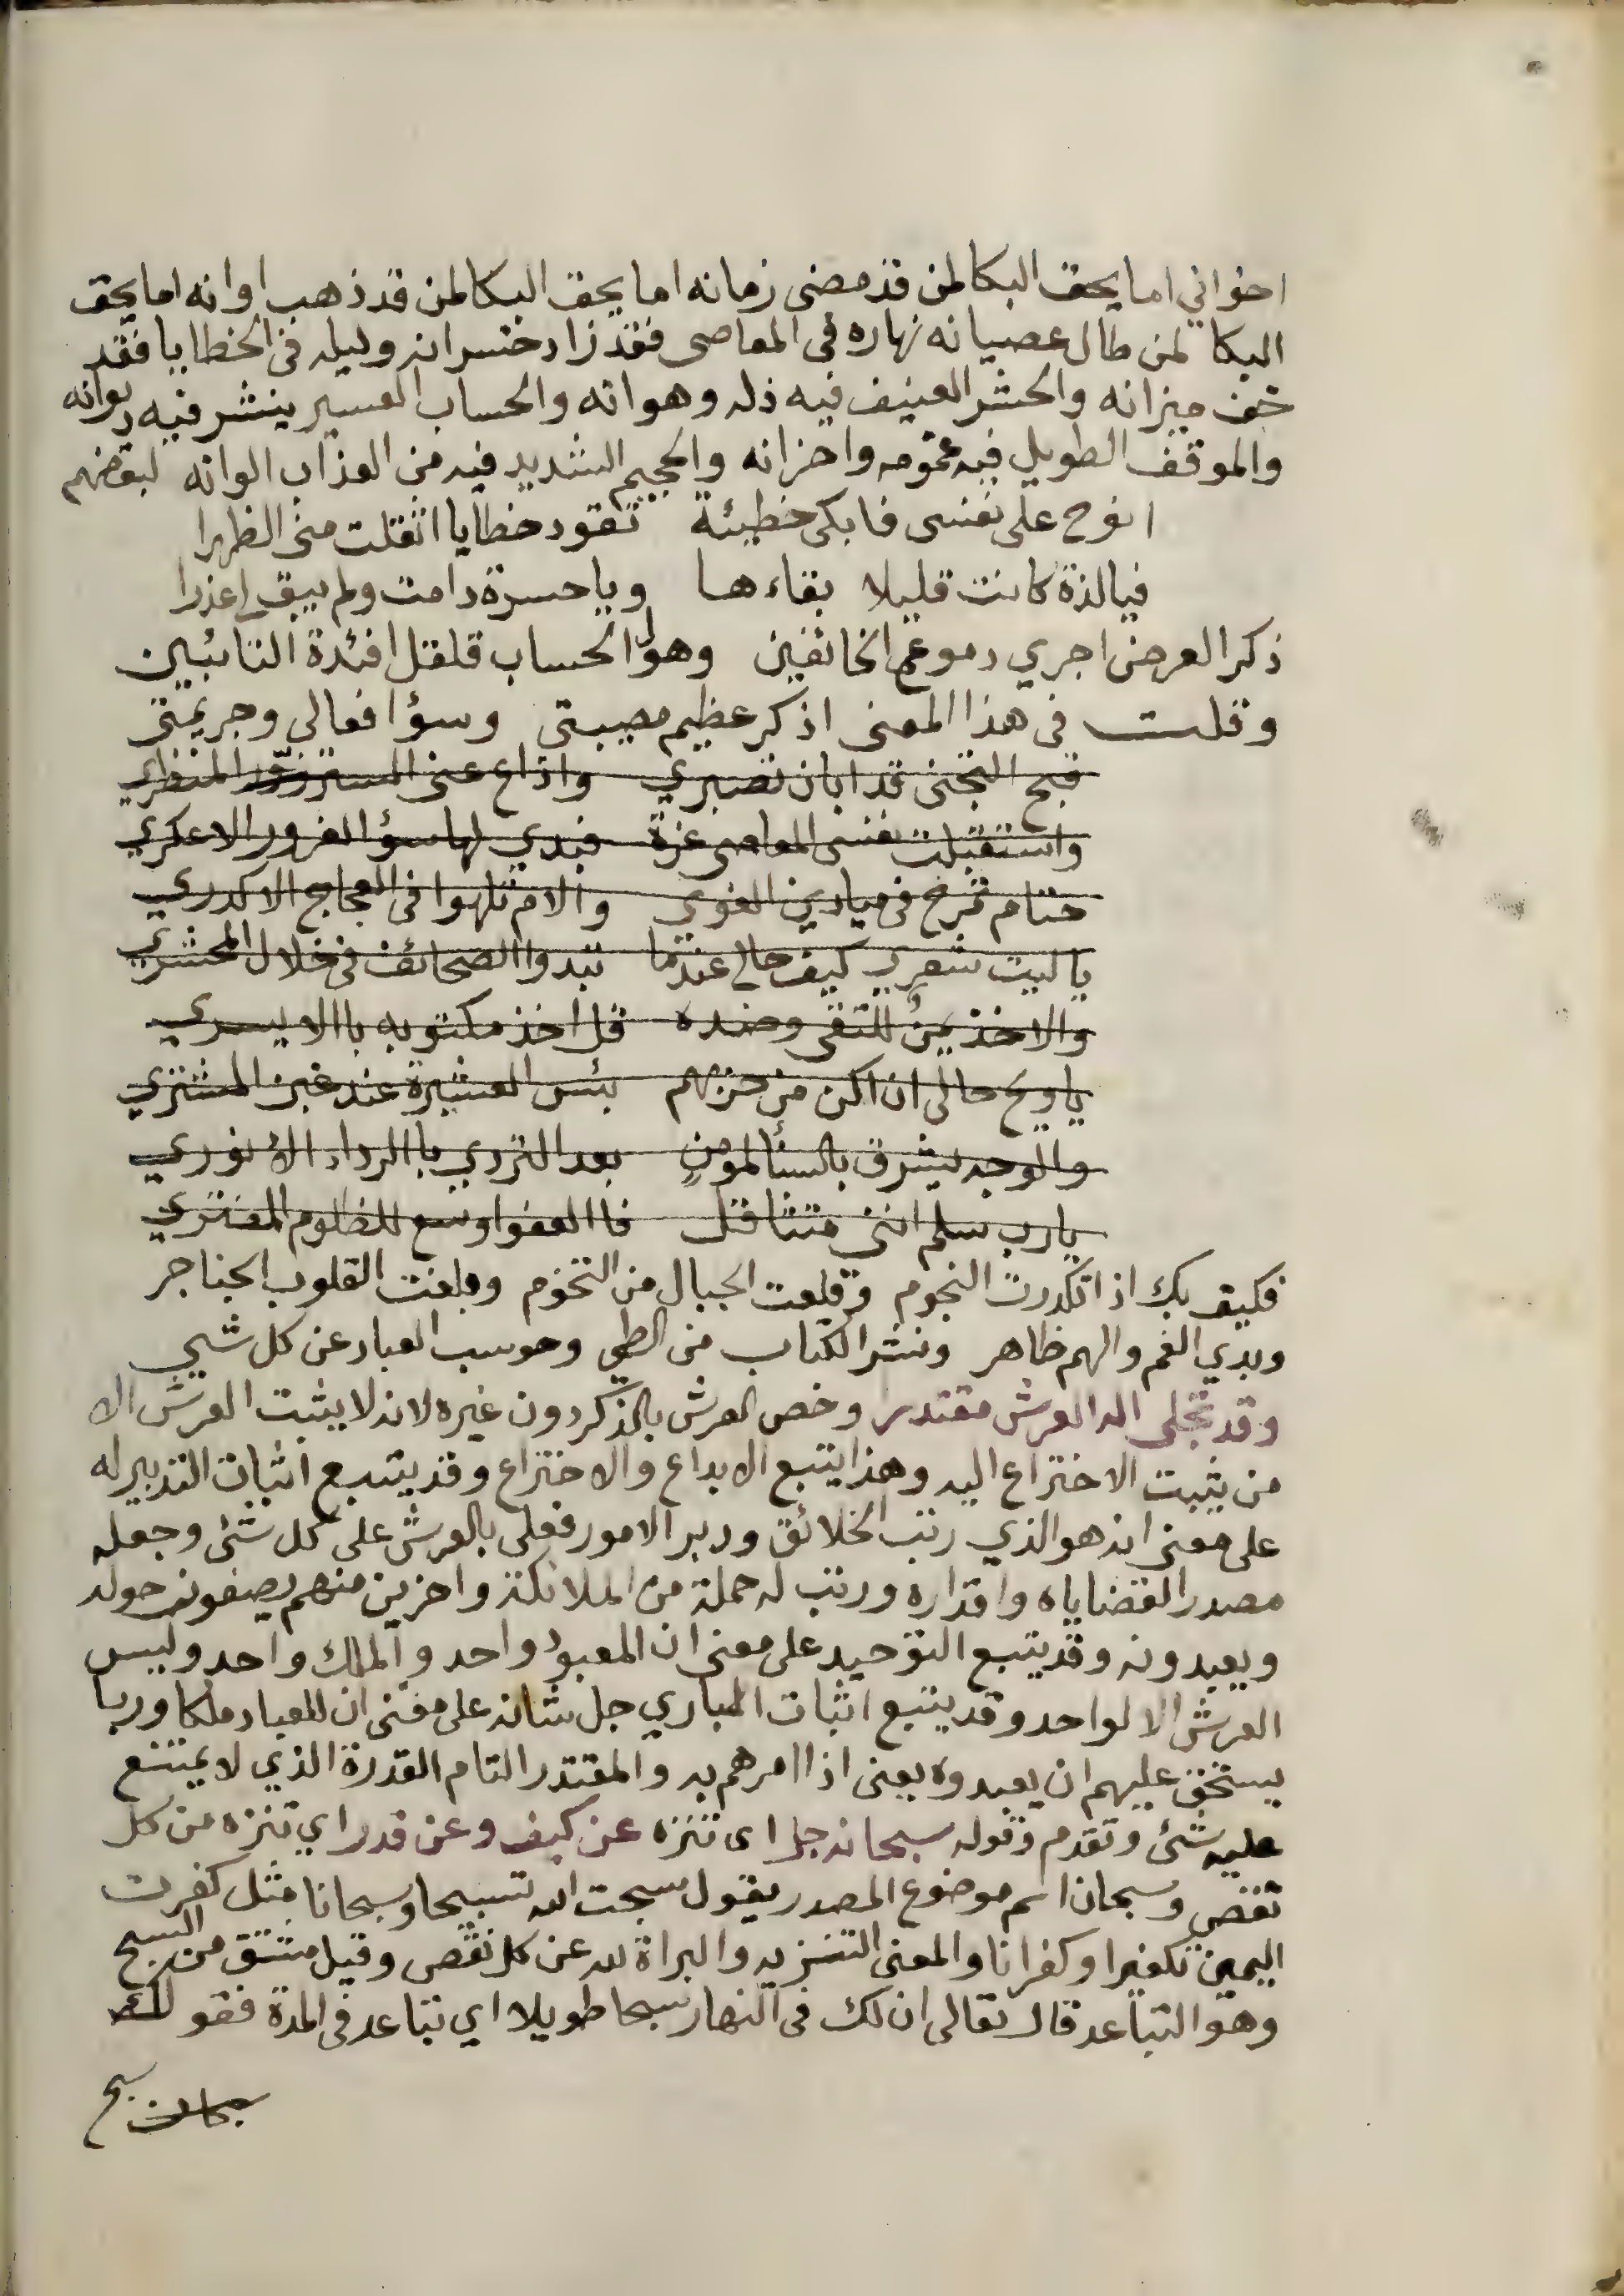 اخواني اما يحق البكا لمن قد مضى زمانه اما يحق البكا لمن قد ذهب اوانه اما يحق
البكا لمن طال عصيانه نهاره في المعاصى فقد زاد خسرانه وليله في الخطايا فقد
خف ميزانه والحشر العنيف فيه ذله وهوانه والحساب العسير ينشر فيه ديوانه
والموقف الطويل فيه غمومه واحزانه والجحيم الشديد فيه من العذاب الوانه لبعضهم
انوح على نفسى فابكى خطيئة تقود خطايا اثقلت منى الظهرا
فيالذة كانت قليلا بقاءها وياحسرة دامت ولم يبق لي عذرا
ذكر العرض اجري دموع الخائفين وهول الحساب قلقل افئدة التائبين
وقلت في هذا المعنى اذكر عظيم مصيبتى وسؤ افعالي وجريمتى
قبح التجنى قد ابان تصبري واذاع عنى الستر المنظري
واستقبلت نفسى المعاصى غرة فبدي لها سؤ الغرور الاعكري
حتام تمرح في ميادين الغوي والام تلهوا في العجاج الاكدري
ياليت شعري كيف حالي عندما تبدوا الصحائف في خلال المحشري
والاخذ يمن للتقى وضده قل اخذ مكتوبه باالايسري
ياويح حالى ان اكن من حزبهم بئس العشيرة عند غبن المشتري
والوجه يشرق بالسنا لمومن بعد التردي باالرداء الانوري
يارب سلم اننى متثاقل فاالعفو اوسع للظلوم المفتري
فكيف بك اذا تكدرت النجوم وقلعت الجبال من التخوم وبلغت القلوب الحناجر
وبدي الغم والهم ظاهر ونشر الكتاب من الطي وحوسب العباد عن كل شيي
وقد تجلى اله العرش مقتدر وخص العرش بالذكر دون غيره لانه لا يثبت العرش الا
من يثبت الاختراع اليه وهذا يتبع الابداع والاختراع وقد يتبع اثبات التدبير له
على معنى انه هو الذي رتب الخلائق ودبر الامور فعلى بالعرش على كل شئ وجعله
مصدرا لقضاياه واقداره ورتب له حملة من الملائكة واخرين منهم يصفون حوله
ويعبدونه وقد يتبع التوحيد على معنى ان المعبود واحد والملك واحد وليس
العرش الا لواحد وقد يتبع اثبات الباري جل شانه على معنى ان للعباد ملكا وربا
يستحق عليهم ان يعبدوه يعنى اذا امرهم به والمقتدر التام القدرة الذي لا يمتنع
عليه شئ وتقدم وقوله سبحانه جل اى تنزه عن كيف وعن قدر اي تنزه من كل
نقص وسبحان اسم موضوع المصدر يقول سبحت الله تسبيحا وسبحانا مثل كفرت
اليمين تكفيرا وكفرانا والمعنى التنزيه والبراة لله عن كل نقص وقيل مشتق من السبح
وهو التباعد قال تعالى ان لك في النهار سبحا طويلا اي تباعد في المدة فقولك
سبحان سبح